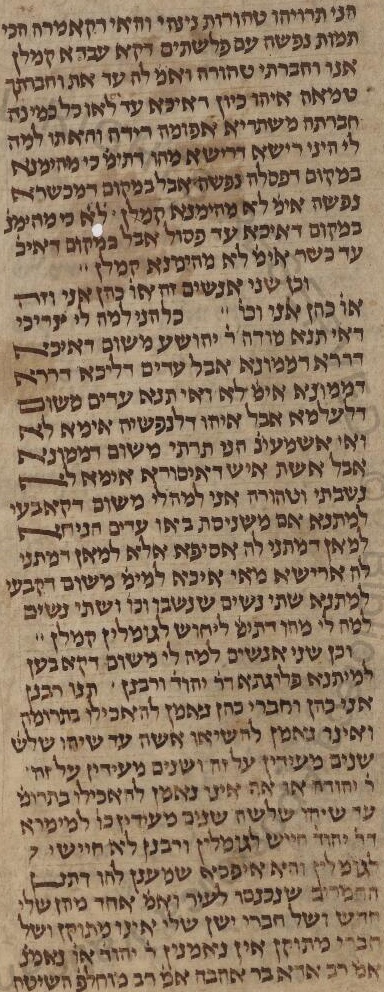 הני תרוייהו טהורות נינהי והאי דקאמרה הכי
תמות נפשה עם פלשתים דקא עבדא קמלן
אני וחברתי טהורה ואמ לה עד את וחברתך
טמאה איהו כיון דאיכא עד לאו כל כמינה
חברתה משתריא אפומה דידה והאתו למה
לי היני רישא דרישא מהו דתימ כי מהימנא
במקום דפסלה נפשה אבל במקום דמכשרא
נפשה אימ לא מהימנא קמלן לא כי מהימנ
במקום דאיכא עד פסול אבל במקום דאיכ
עד כשר אימ לא מהימנא קמלן
וכן שני אנשים זה או כהן אני וזה
או כהן אני וכו כל הני למה לי צריכי
דאי תנא מודה ר יהושע משום דאיכא
דררא דממונא אבל עדים דליכא דררא
דממונא אימ לא ואי תנא עדים משום
דלעלמא אבל איהו דלנפשיה אימא לא
ואי אשמעינ הני תרתי משום דממונא
אבל אשת איש דאיסורא אימא לא
נשבתי וטהורה אני למה לי משום דקאבעי
למתנא אם משניסת באו עדים הניחא
למאן דמתני לה אסיפא אלא למאן דמתני
לה ארישא מאי איכא למימ משום דקבעי
למתנא שתי נשים שנשבו וכו ושתי נשים
למה לי מהו דתימ ליחוש לגומלין קמלן
וכן שני אנשים למה לי משום דקאבען
למיתנא פלוגתא דר יהוד ורבנן תנו רבנן
אני כהן וחברי כהן נאמן להאכילו בתרומה
ואינו נאמן להשיאו אשה עד שיהו שלש
שנים מעידין על זה ושנים מעידין על זה
ר יהודה או אה אינו נאמן להאכילו בתרומ
עד שיהו שלשה שנים מעידין כו למימרא
דר יהוד חייש לגומלין ורבנן לא חיישי
לגומלין והא איפכא שמענן להו דתנן
החמרים שנכנסו לעיר ואמ אחד מהן שלי
חדש ושל חברי ישן שלי אינו מתוקן ושל
חברי מתוקן אין נאמנין ר יהוד או נאמנ
אמ רב אדא בר אהבה אמ רב מוחלפ השיטה